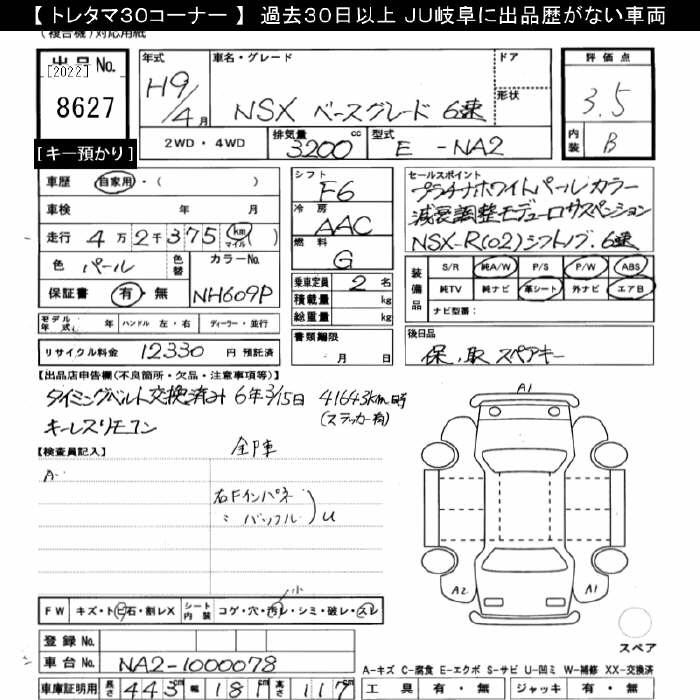 【 トレタマ30コーナー 】 過去30日以上 JU岐阜に出品歴がない車両
(複合機)対応用紙
出品No.
[2022]
8627
[キー預かり]
年式
H9/4月
車名・グレード
NSX ベースグレード 6速
ドア
形状
2WD・4WD
排気量
3200cc
型式
E -NA2
評価点
3.5
内装
B
車歴 自家用・( )
車検 年 月
走行 4万2千375 km マイル ( )
色 パール 色替
カラーNo. NH609P
保証書 有・無
モデル年式 年 ハンドル 左・右 ディーラー・並行
リサイクル料金 12330 円 預託済
シフト
F6
冷房
AAC
燃料
G
乗車定員 2 名
積載量 kg
総重量 kg
書類期限
月 日
セールスポイント
プラチナホワイトパールカラー
減衰調整モデューロサスペンション
NSX-R(02)シフトノブ.6速
装備品
S/R 純A/W P/S P/W ABS
純TV 純ナビ 革シート 外ナビ エアB
ナビ型番:
後日品
保.取 スペアキー
【出品店申告欄(不良箇所・欠品・注意事項等)】
タイミングベルト交換済み 6年3/15日 41643km時
(ステッカー有)
キーレスリモコン
【検査員記入】
A-
右Fインパネ
〃 バックル
U
小
FW キズ・トビ石・割レX
シート内装 コゲ・穴・汚レ・シミ・破レ・スレ
登録No.
車台No. NA2-1000078
車庫証明用 長さ 443cm 幅 181cm 高さ 117cm
A1
A2
A1
スペア
A-キズ C-腐食 E-エクボ S-サビ U-凹ミ W-補修 XX-交換済
工具 有・無 ジャッキ 有・無